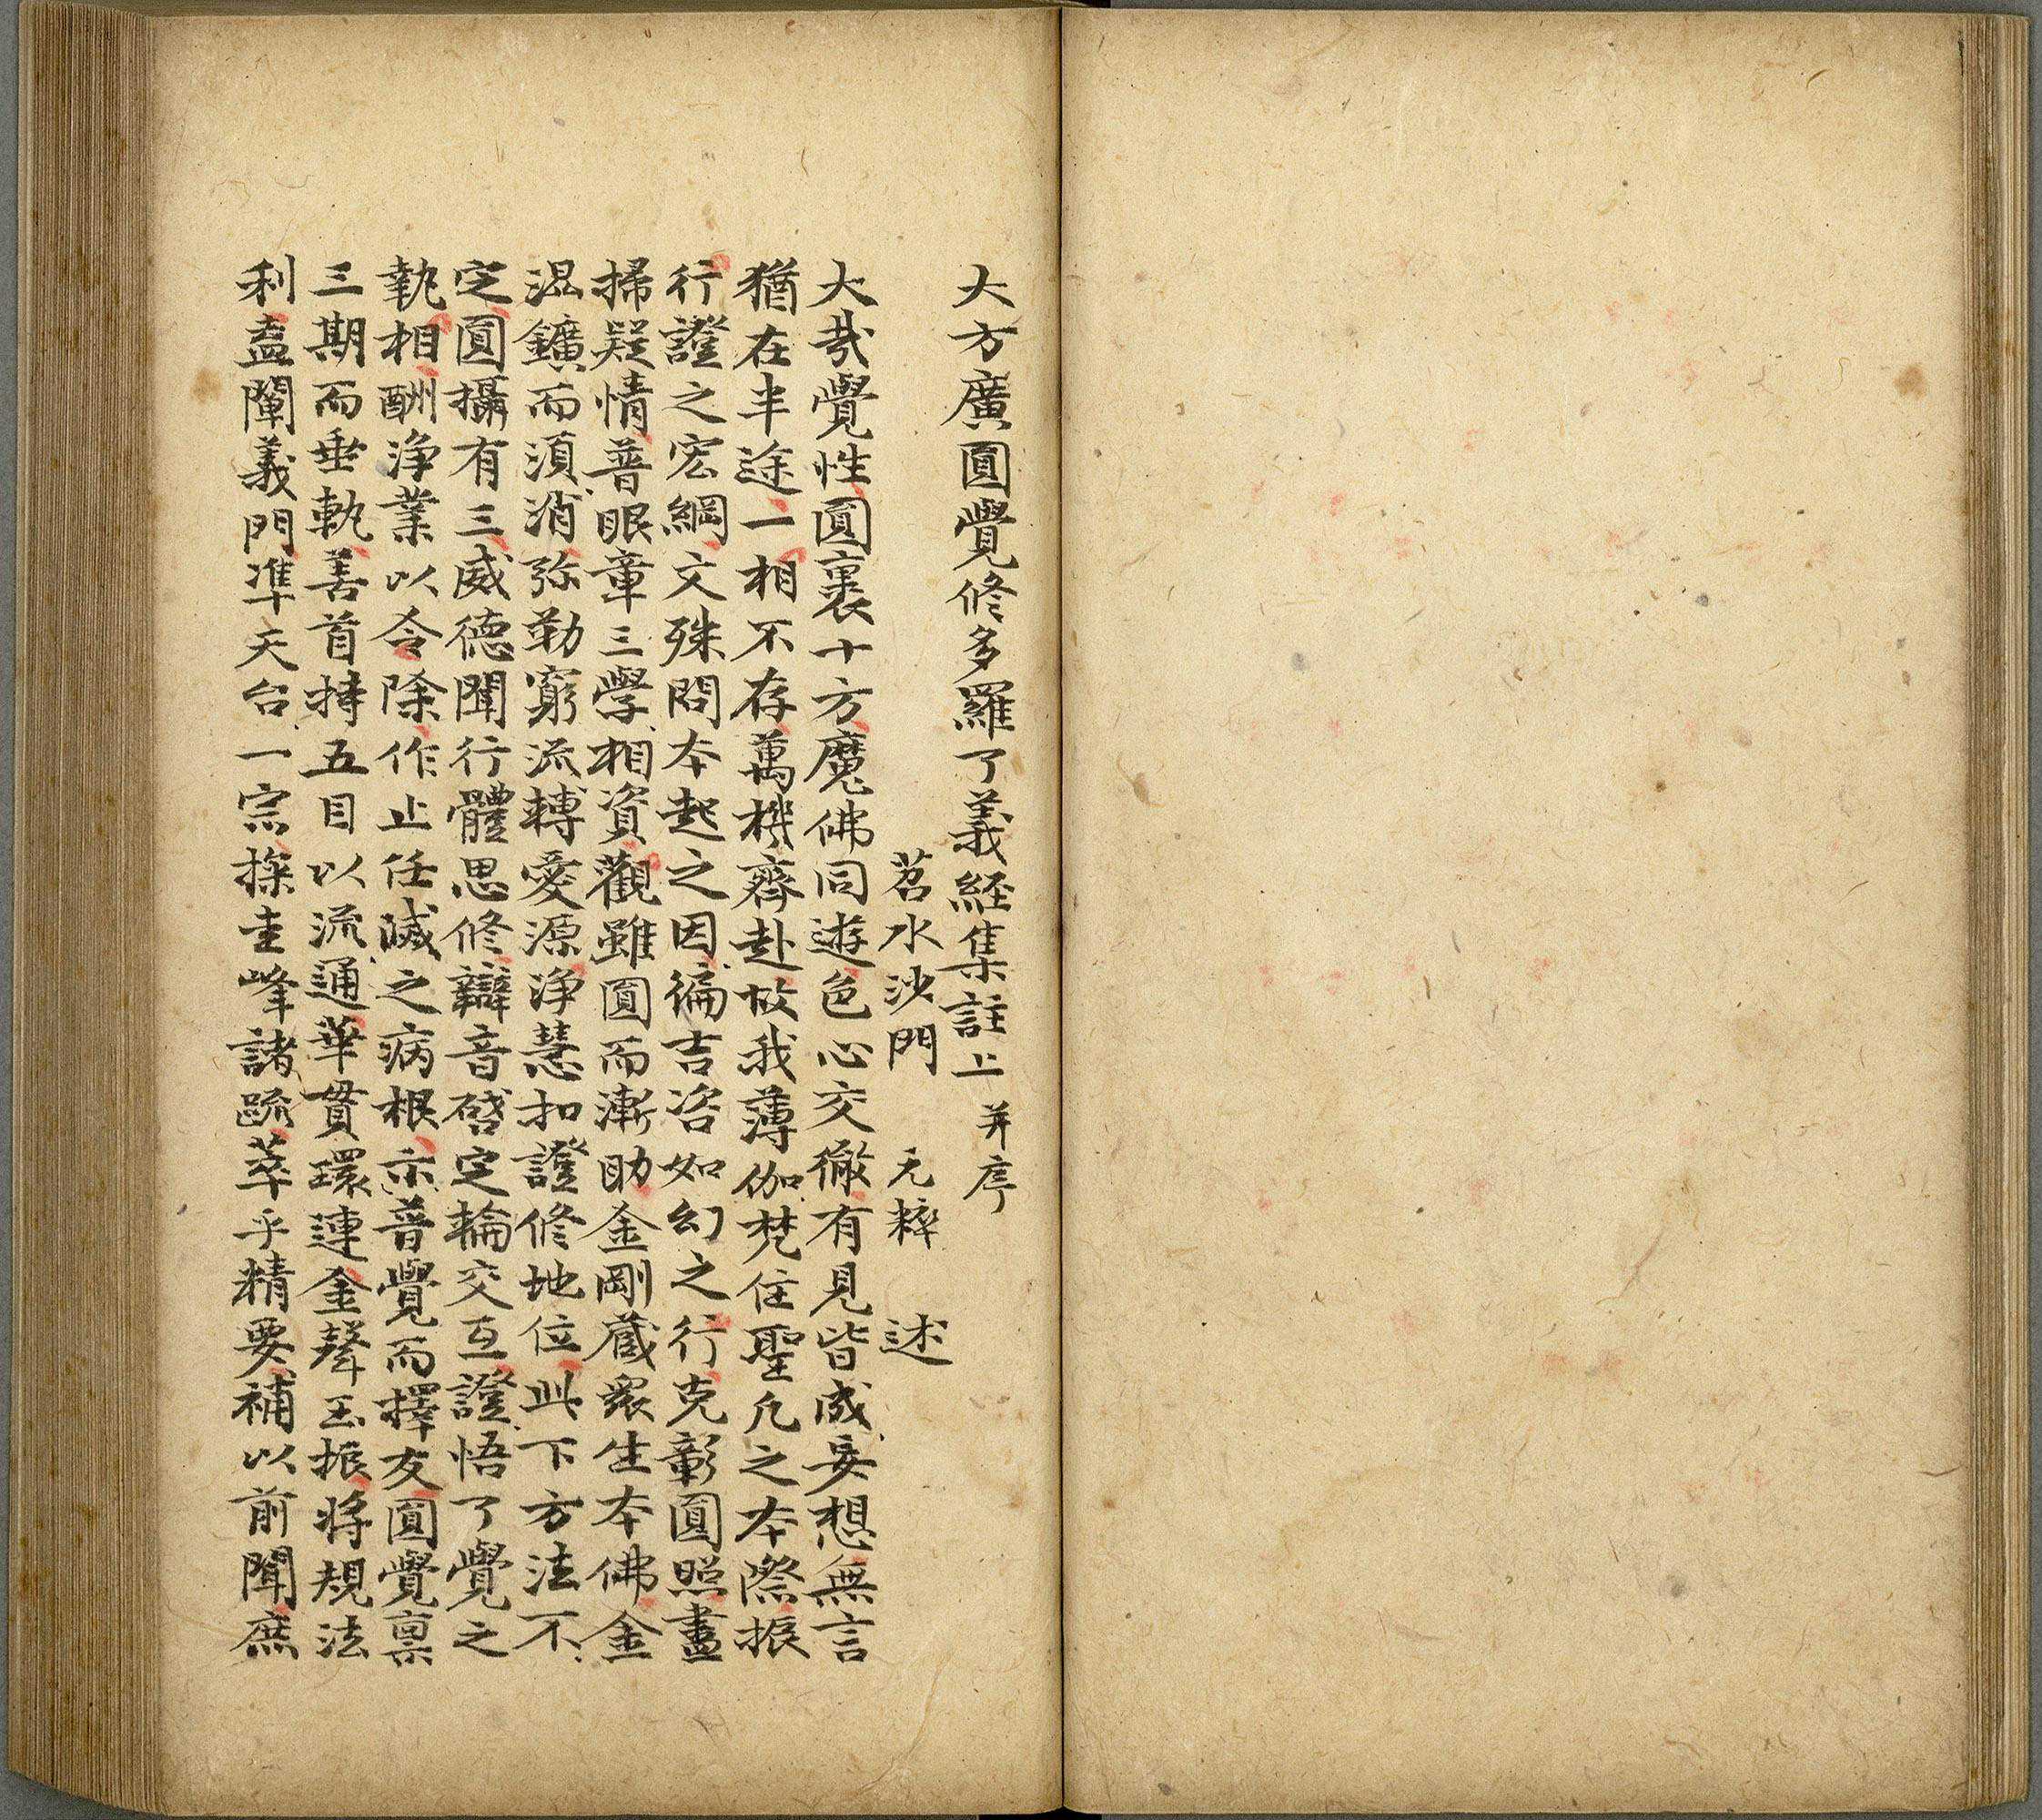 大方廣圓覺修多羅了義經集註上 并序
苕水沙門 元粹 述
大哉覺性圓裹十方魔佛同遊色心交徹有見皆成妄想無言
猶在半途一相不存萬機齊赴故我薄伽梵住聖凡之本際振
行證之宏綱文殊問本起之因徧吉咨如幻之行克彰圓照盡
掃疑情普眼章三學相資觀雖圓而漸助金剛藏衆生本佛金
混鑛而須消弥勒窮流轉愛源淨慧扣證修地位此下方法不
定圓攝有三威德聞行體思修辯音啓定輪交互證悟了覺之
執相酬淨業以令除作止任滅之病根示普覺而擇友圓覺禀
三期而垂軌善首持五目以流通華貫環連金聲玉振將規法
利盍闡義門準天台一宗探圭峰諸疏萃乎精要補以前聞庶